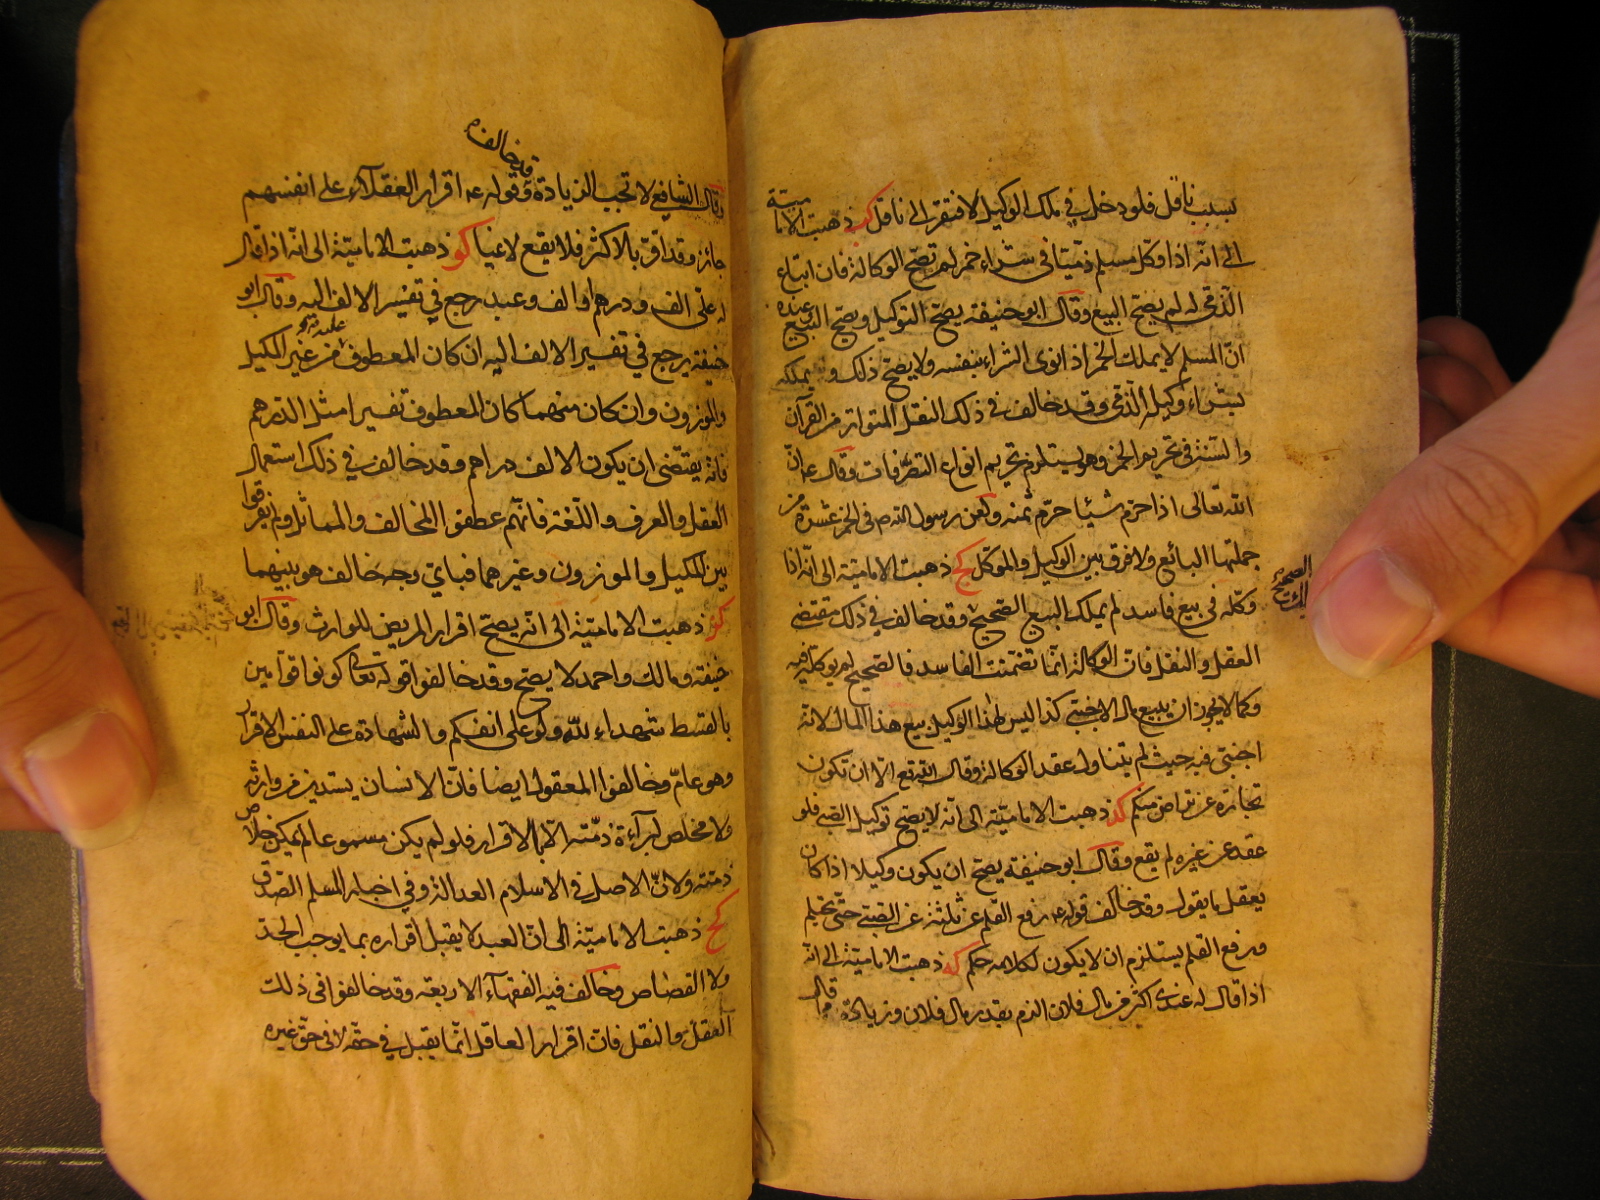 بسبب ناقل فلو دخل في ملك الوكيل لافتقر الى ناقل كب ذهبت الامامية
الى انّه اذا وكّل مسلم ذمّيّا في شراء خمر لم تصحّ الوكالة فان ابتاع
الذّمّى له لم يصحّ البيع وقال ابو حنيفة يصحّ التوكيل ويصحّ البيع وعنده
انّ المسلم لا يملك الخمر اذا نوى الشراء بنفسه ولا يصحّ ذلك ويملكه
بشراء وكيله الذّمّى وقد خالف في ذلك النقل المتواتر من القرآن
والسّنّة في تحريم الخمر وهو يستلزم تحريم انواع التصرّفات وقال ع انّ
اللّه تعالى اذا حرّم شيئا حرّم ثمنه ولعن رسول اللّه ص في الخمر عشرة من
جملتها البائع ولا فرق بين الوكيل والموكّل كج ذهبت الاماميّة الى انّه اذا
وكّله في بيع فاسد لم يملك البيع الصّحيح وقد خالف في ذلك مقتضى
الصحيح
العقل والنقل فانّ الوكالة انّما تضمّنت الفاسد فالصّحيح لم يوكّله فيه
وكما لا يجوز ان يبيع مال الاجنبى كذا ليس لهذا الوكيل بيع هذا المال لانّه
اجنبىّ فيه حيث لم يتناوله عقد الوكالة وقال اللّه تع الّا ان تكون
تجارة عن تراض منكم كد ذهبت الاماميّة الى انّه لا يصحّ توكيل الصّبى فلو
عقد عن غيره لم يقع وقال ابو حنيفة يصحّ ان يكون وكيلا اذا كان
يعقل ما يقول وقد خالف قوله ع رفع القلم عن ثلثة عن الصّبى حتّى يحتلم
ورفع القلم يستلزم ان لا يكون لكلامه حكم كه ذهبت الاماميّة الى انّه
اذا قال له عندى اكثر من مال فلان الزم بقدر مال فلان وزيادة
وقال
قد خالف
وقال الشافعي لا تجب الزيادة وقوله ع اقرار العقلآء على انفسهم
جائز وقد اقرّ بالاكثر فلا يقع لاغيا كو ذهبت الاماميّة الى انّه اذا قال
له علىّ الف ودرهم او الف وعبد رجع في تفسير الالف اليه وقال ابو
حنيفة يرجع في تفسير الالف اليه ان كان المعطوف عليه من غير المكيل
والموزون وان كان منهما كان المعطوف تفسيرا مثل الدّرهم
فانّه يقتضى ان يكون الالف دراهم وقد خالف في ذلك استعمال
العقل والعرف واللّغة فانّهم عطفوا المخالف والمماثل ولم يفرقوا
بين المكيل والموزون وغيرهما فباىّ وجه خالف هو بينهما
كز ذهبت الاماميّة الى انّه يصحّ اقرار المريض للوارث وقال ابو
حنيفة ومالك واحمد لا يصحّ وقد خالفوا قوله تعالى كونوا قوّامين
بالقسط شهداء للّه ولو على انفسكم والشهادة على النفس الاقرار
وهو عامّ وخالفوا المعقول ايضا فانّ الانسان يستدين من وارثه
ولا مخلص لبرآءة ذمّته الّا بالاقرار فلو لم يكن مسموعا لم يمكن خلاص
ذمّته ولانّ الاصل في الاسلام العدالة وفي اخبار المسلم الصّدق
كح ذهبت الاماميّة الى انّ العبد لا يقبل اقراره بما يوجب الحدّ
ولا القصاص وخالف فيه الفقهآء الاربعة وقد خالفوا في ذلك
العقل والنقل فانّ اقرار العاقل انّما يقبل في حقّه لا في حقّ غيره